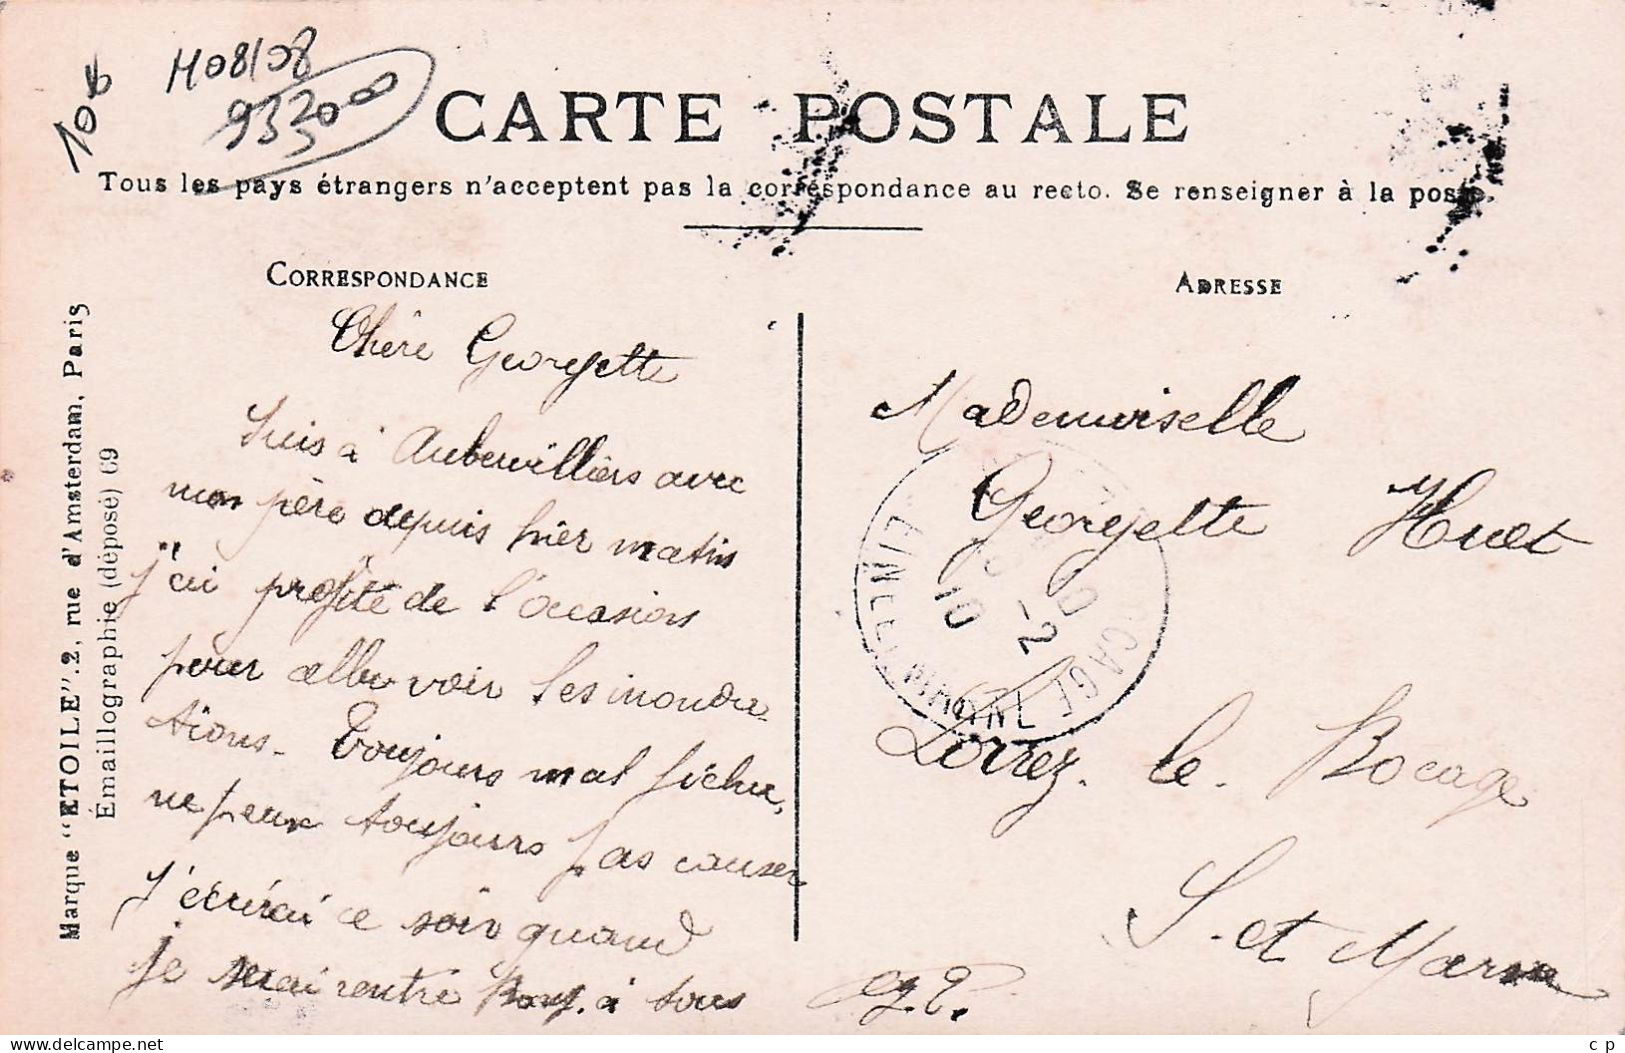 10 €
H 08/08
93 300
CARTE POSTALE
Tous les pays étrangers n'acceptent pas la correspondance au recto. Se renseigner à la poste.
CORRESPONDANCE
Chère Georgette
Suis à Aubervilliers avec
mon père depuis hier matin
j'ai profité de l'occasion
pour aller voir les inonda-
tions. Toujours mal fichu,
ne peux toujours pas causer
J'écrirai ce soir quand
je serai rentré à tous
ADRESSE
Mademoiselle
Georgette Huet
Lorrez. le. Bocage
S. et Marne
Marque "ETOILE". 2, rue d'Amsterdam, Paris
Émaillographie (déposé) 69
-2
10
CAGE
delcampe.net
c p